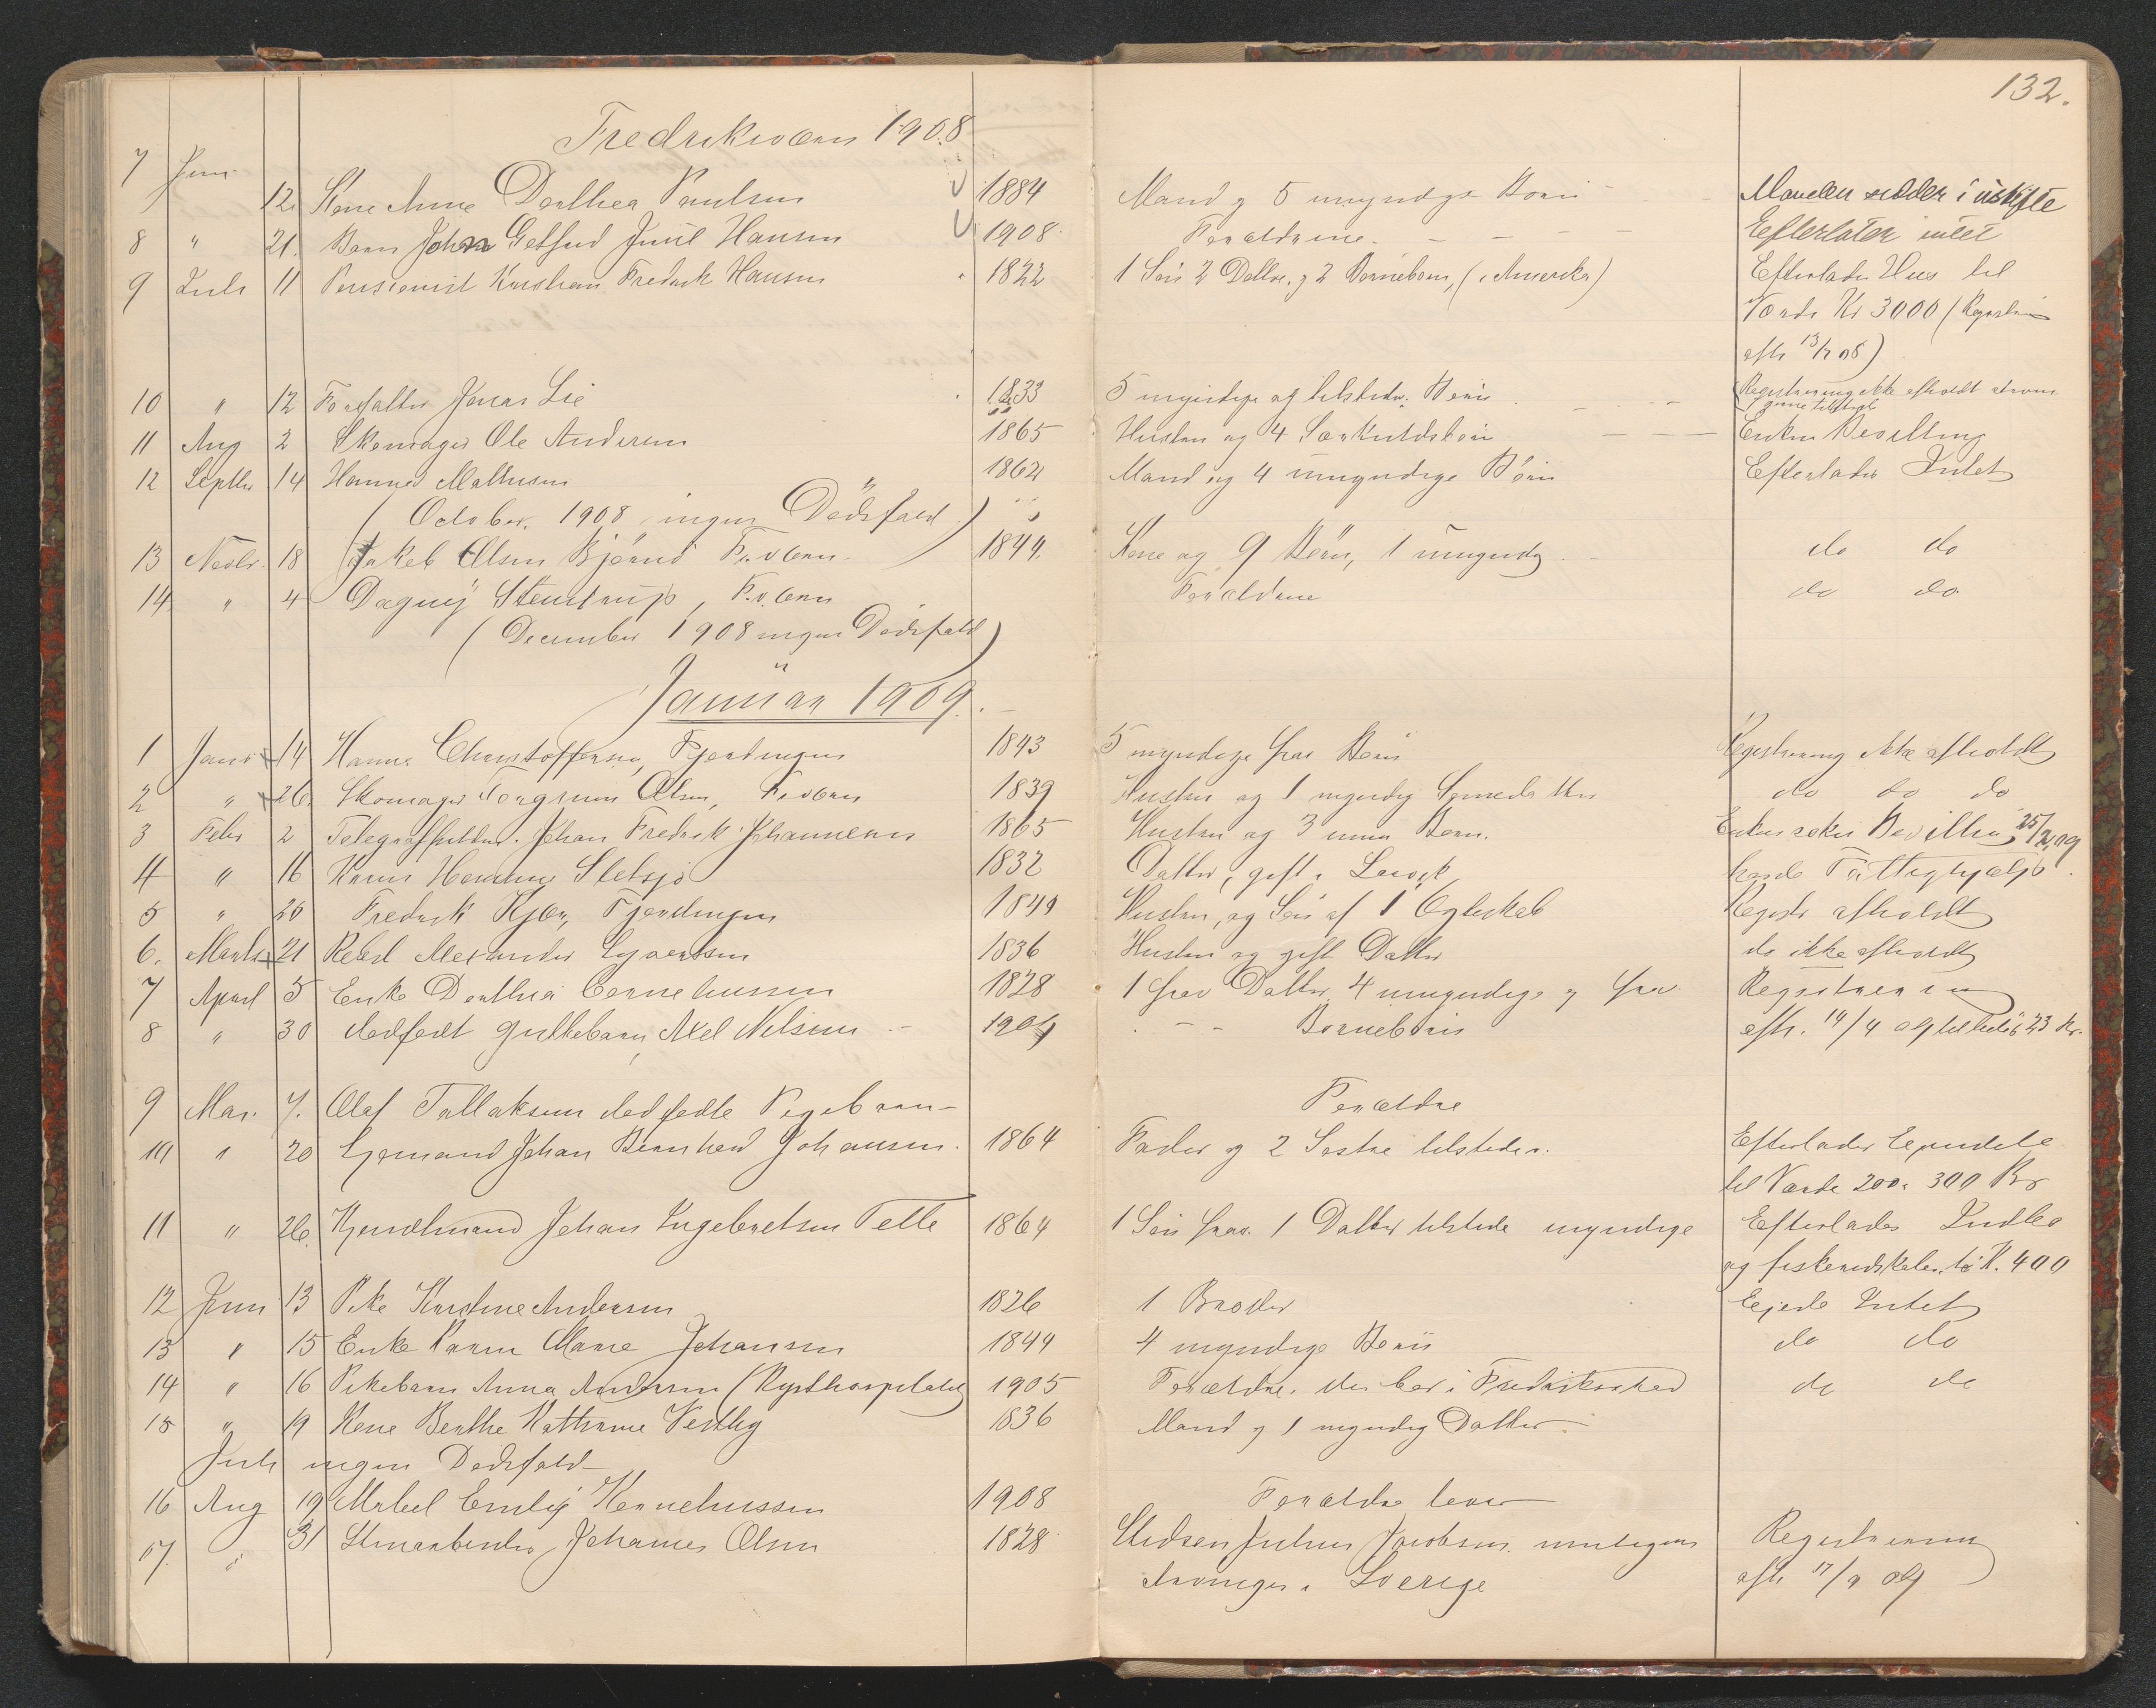 132.
Fredriksværn 1908
7 Juni 12 Kone Anne Dorthea Paulsen 1884 Mand og 5 umyndige Börn Manden sidder i uskifte
8 " 21. Barn Johan Juul Hansen 1908 Forældrene. Efterlater intet
9 Juli 11 Pensionist Kristian Fredrik Hansen 1822 1 Sön 2 Døtre og 2 Børnebørn, (i Amerika) Efterlader Hus til
Værdi Kr 3000 (Registrering
afh 13/7 08)
10 " 12 Forfatter Jonas Lie 1833 5 myndige og tilstedev. Börn Registrering ikke afholdt
11 Aug 2 Skomager Ole Andersen 1865 Hustru og 4 Særkuldsbørn Enken Bevilling
12 Septbr 14 Hanna Mathisen 1862 Mand og 4 umyndige Börn Efterlader Intet
(October 1908 ingen Dödsfald)
13 Novbr. 18 Jakob Olsen Bjønnes Fr.værn 1844 Kone og 9 Börn, 1 umyndig do do
14 " 4 Dagny Stenstrup, Fr.værn Forældrene do do
(December 1908 ingen Dödsfald)
Januar 1909.
1 Janr 14 Hanna Christoffersen, Fjerdingen 1843 5 myndige frav. Börn Registrering ikke afholdt
2 " 26. Skomager Torgrim Olsen, Fr.værn 1839 Hustru og 1 myndig Sønnedatter do do do
3 Febr 2 Johan Fredrik Johannesen 1865 Hustru og 3 umn Børn. Enken søker Bevilling 25/2 09
4 " 16 Karen 1832 Datter, gift i Larvik havde Fattighjælp.
5 " 20 Fredrik Kjær, Fjerdingen 1849 Hustru, og Sön af 1 Egteskab Registr afholdt
6. Marts 21 Rebsl. Alexander Syvertsen 1836 Hustru og gift Datter do ikke afholdt
7 April 5 Enke Dorthea Corneliussen 1828 1 frav Datter 4 umyndige og frav. Registrering
8 " 30 dødfødt guttebarn, Axel Nilsen 1909 Börnebörn afh. 14/4 09
9 Mai. 7. Olaf Tallaksen dødfødte Pigebarn Forældre
10 " 20 Johan Bernhard Johansen. 1864 Fader og 2 Søstre tilstede. Efterlader Eiendele
til Værdi 200 a 300 Kr
11 " 26. Johan Ingebretsen Telle 1864 1 Sön frav. 1 Datter tilstede myndige Efterlader Indbo
og fiskeredskaber K. 400
12 Juni 13 Pike Karoline Andersen 1826 1 Broder Ejede Intet
13 " 15 Enke Karen Marie Johansen 1844 4 myndige Börn do do
14 " 16 Pikebarn Anna Andersen (Kysthospitalet) 1905 Forældre, der bor i Fredrikstad do do
15 " 19 Kone Berthe Kathrine Vestby 1836 Mand og 1 myndig Datter
Juli ingen Dødsfald
16 Aug 19 Mabel Emily Korneliussen 1908 Forældre lever
17. " 31 Stenarbeider Johannes Olsen 1828 Stedsøn Julius Jacobsen Registrering
i Sverige afh 17/9 09